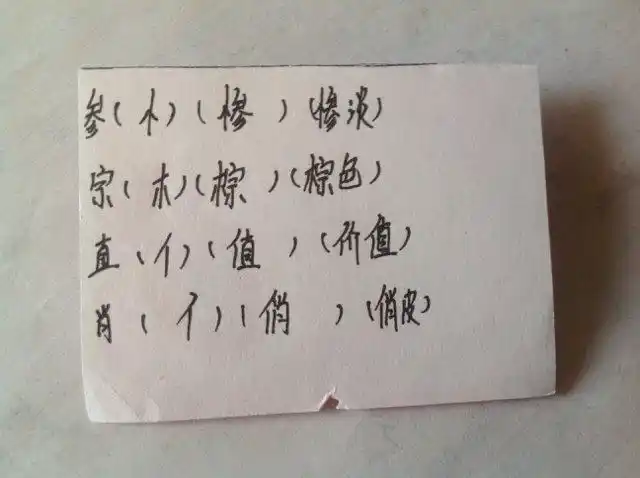 参(忄)(惨)(惨淡)
宗(木)(棕)(棕色)
直(亻)(值)(价值)
肖(亻)(俏)(俏皮)